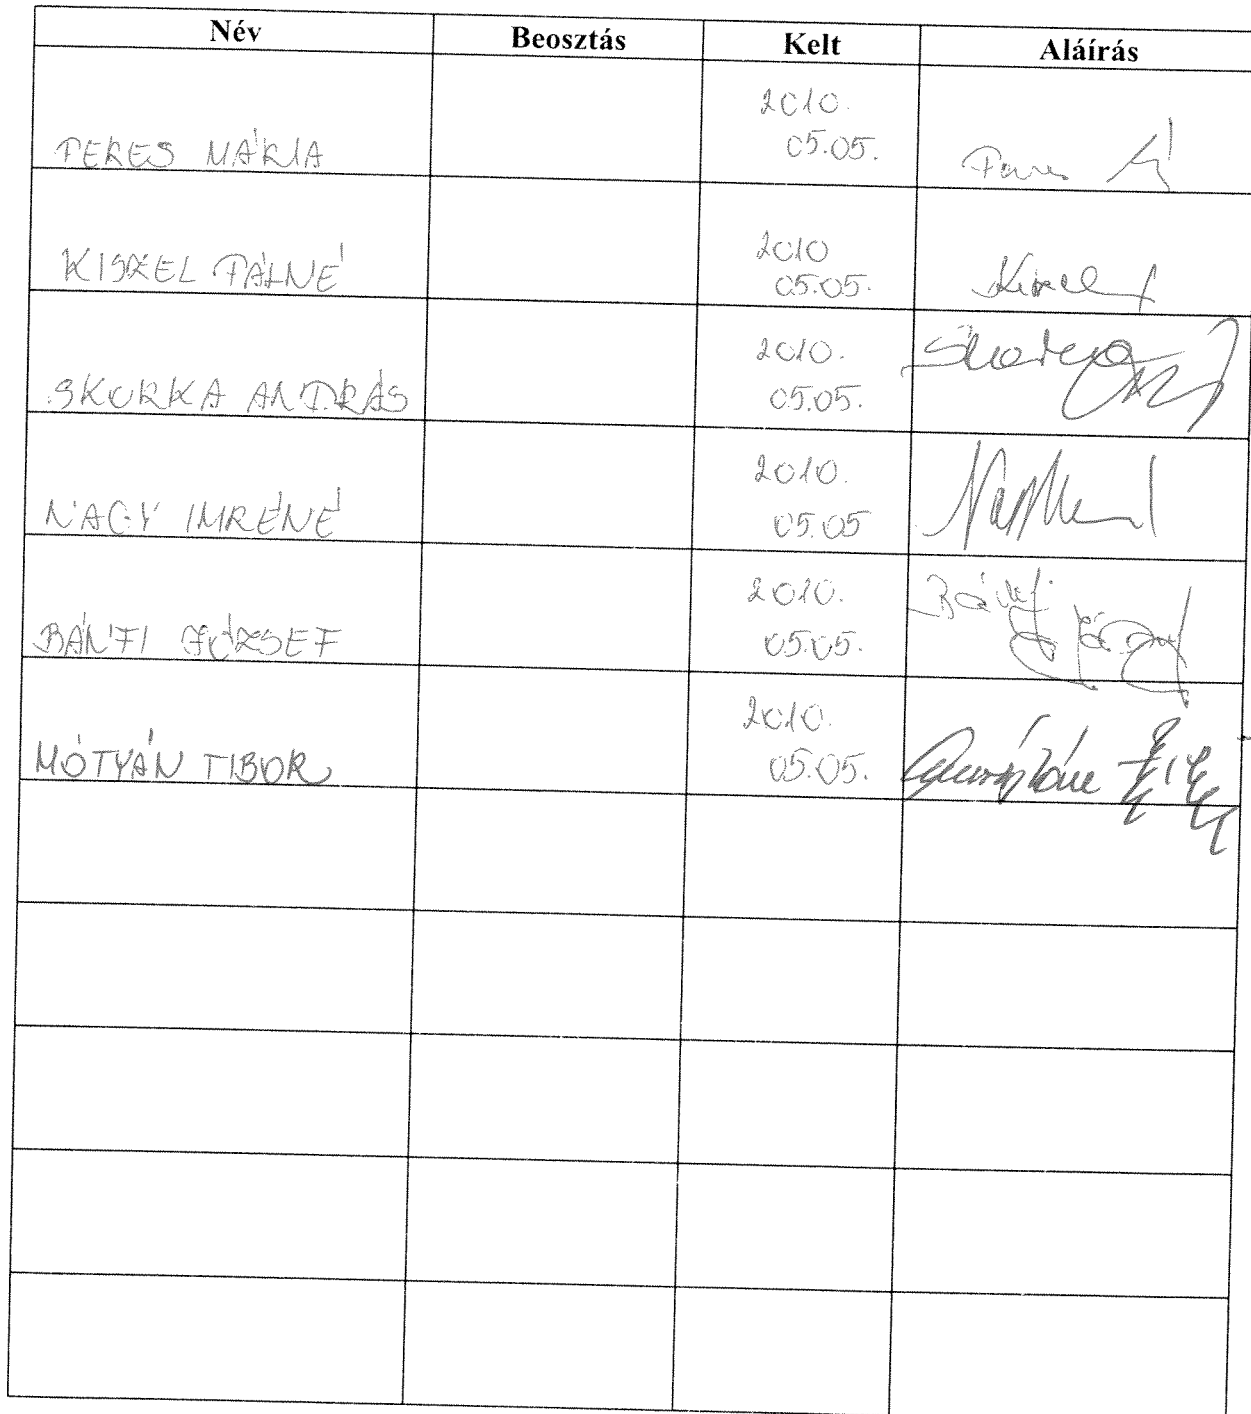 Név Beosztás Kelt Aláírás
2010.
05.05.
PERES MÁRIA
2010
05.05.
KISZEL PÁLNÉ
2010.
05.05.
SKURKA ANDRÁS
2010.
05.05
NAGY IMRÉNÉ
2010.
05.05.
BÁNFI JÓZSEF
2010.
05.05.
MÓTYÁN TIBOR